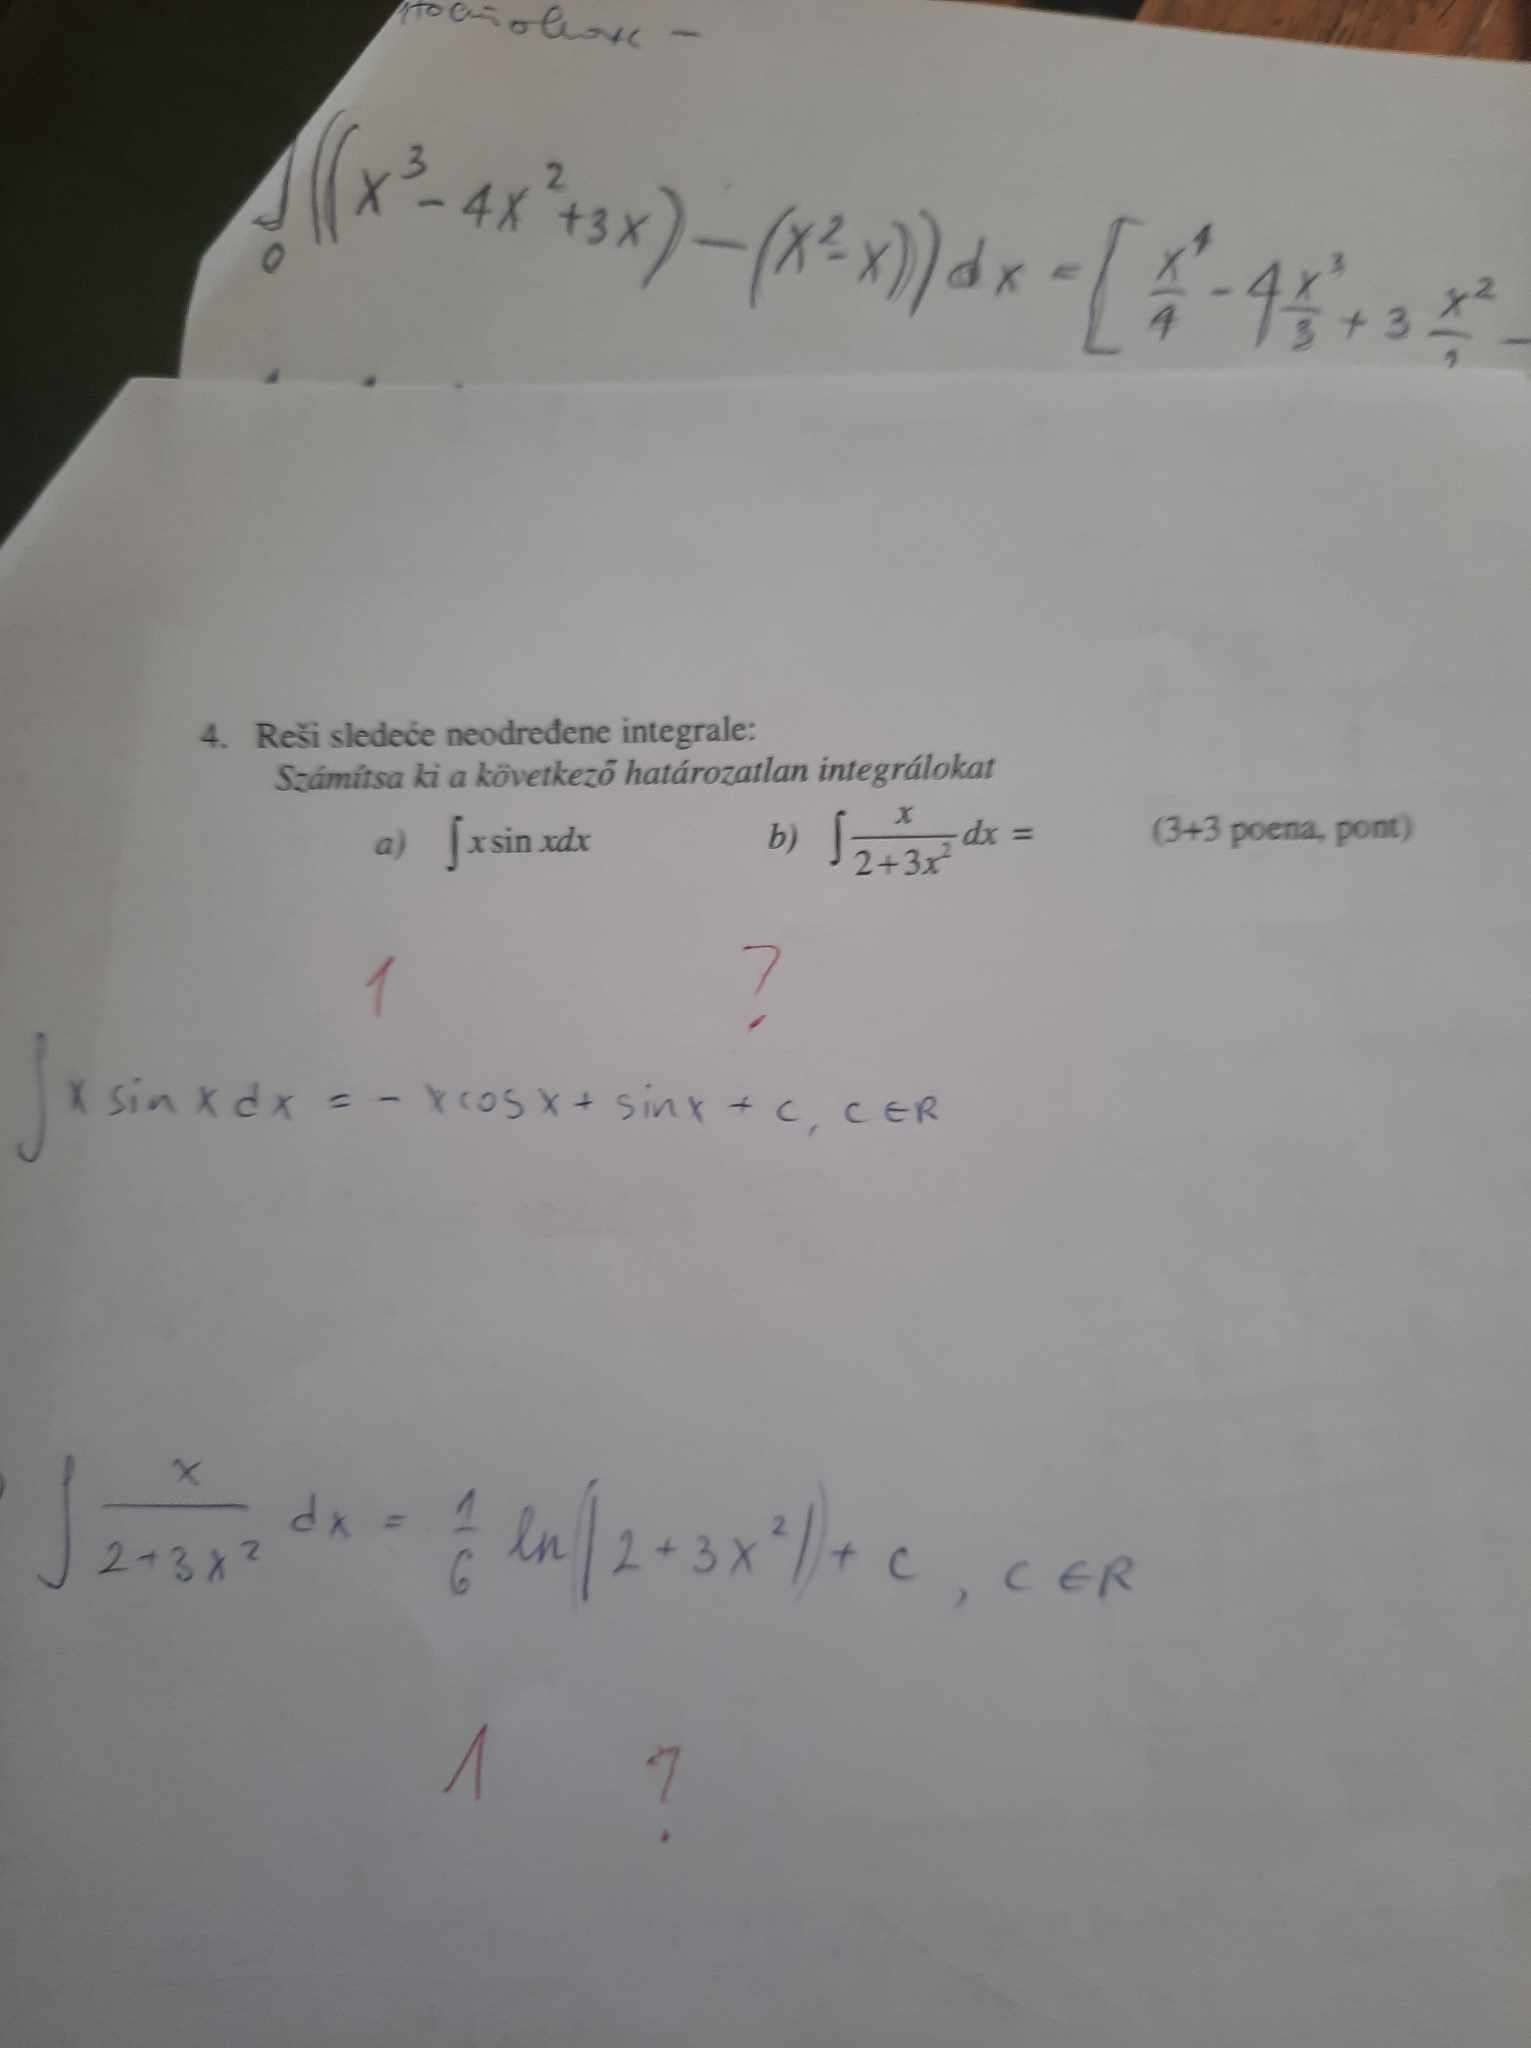 ∫₀ ((x³ - 4x² + 3x) - (x² - x)) dx = [x⁴/4 - 4 x³/3 + 3 x²/2 -
4. Reši sledeće neodređene integrale:
Számítsa ki a következő határozatlan integrálokat
a) ∫ x sin xdx b) ∫ x/(2+3x²) dx = (3+3 poena, pont)
1 ?
∫ x sin x dx = - x cos x + sin x + c, c ∈ R
∫ x/(2+3x²) dx = 1/6 ln(|2+3x²|) + c, c ∈ R
1 ?